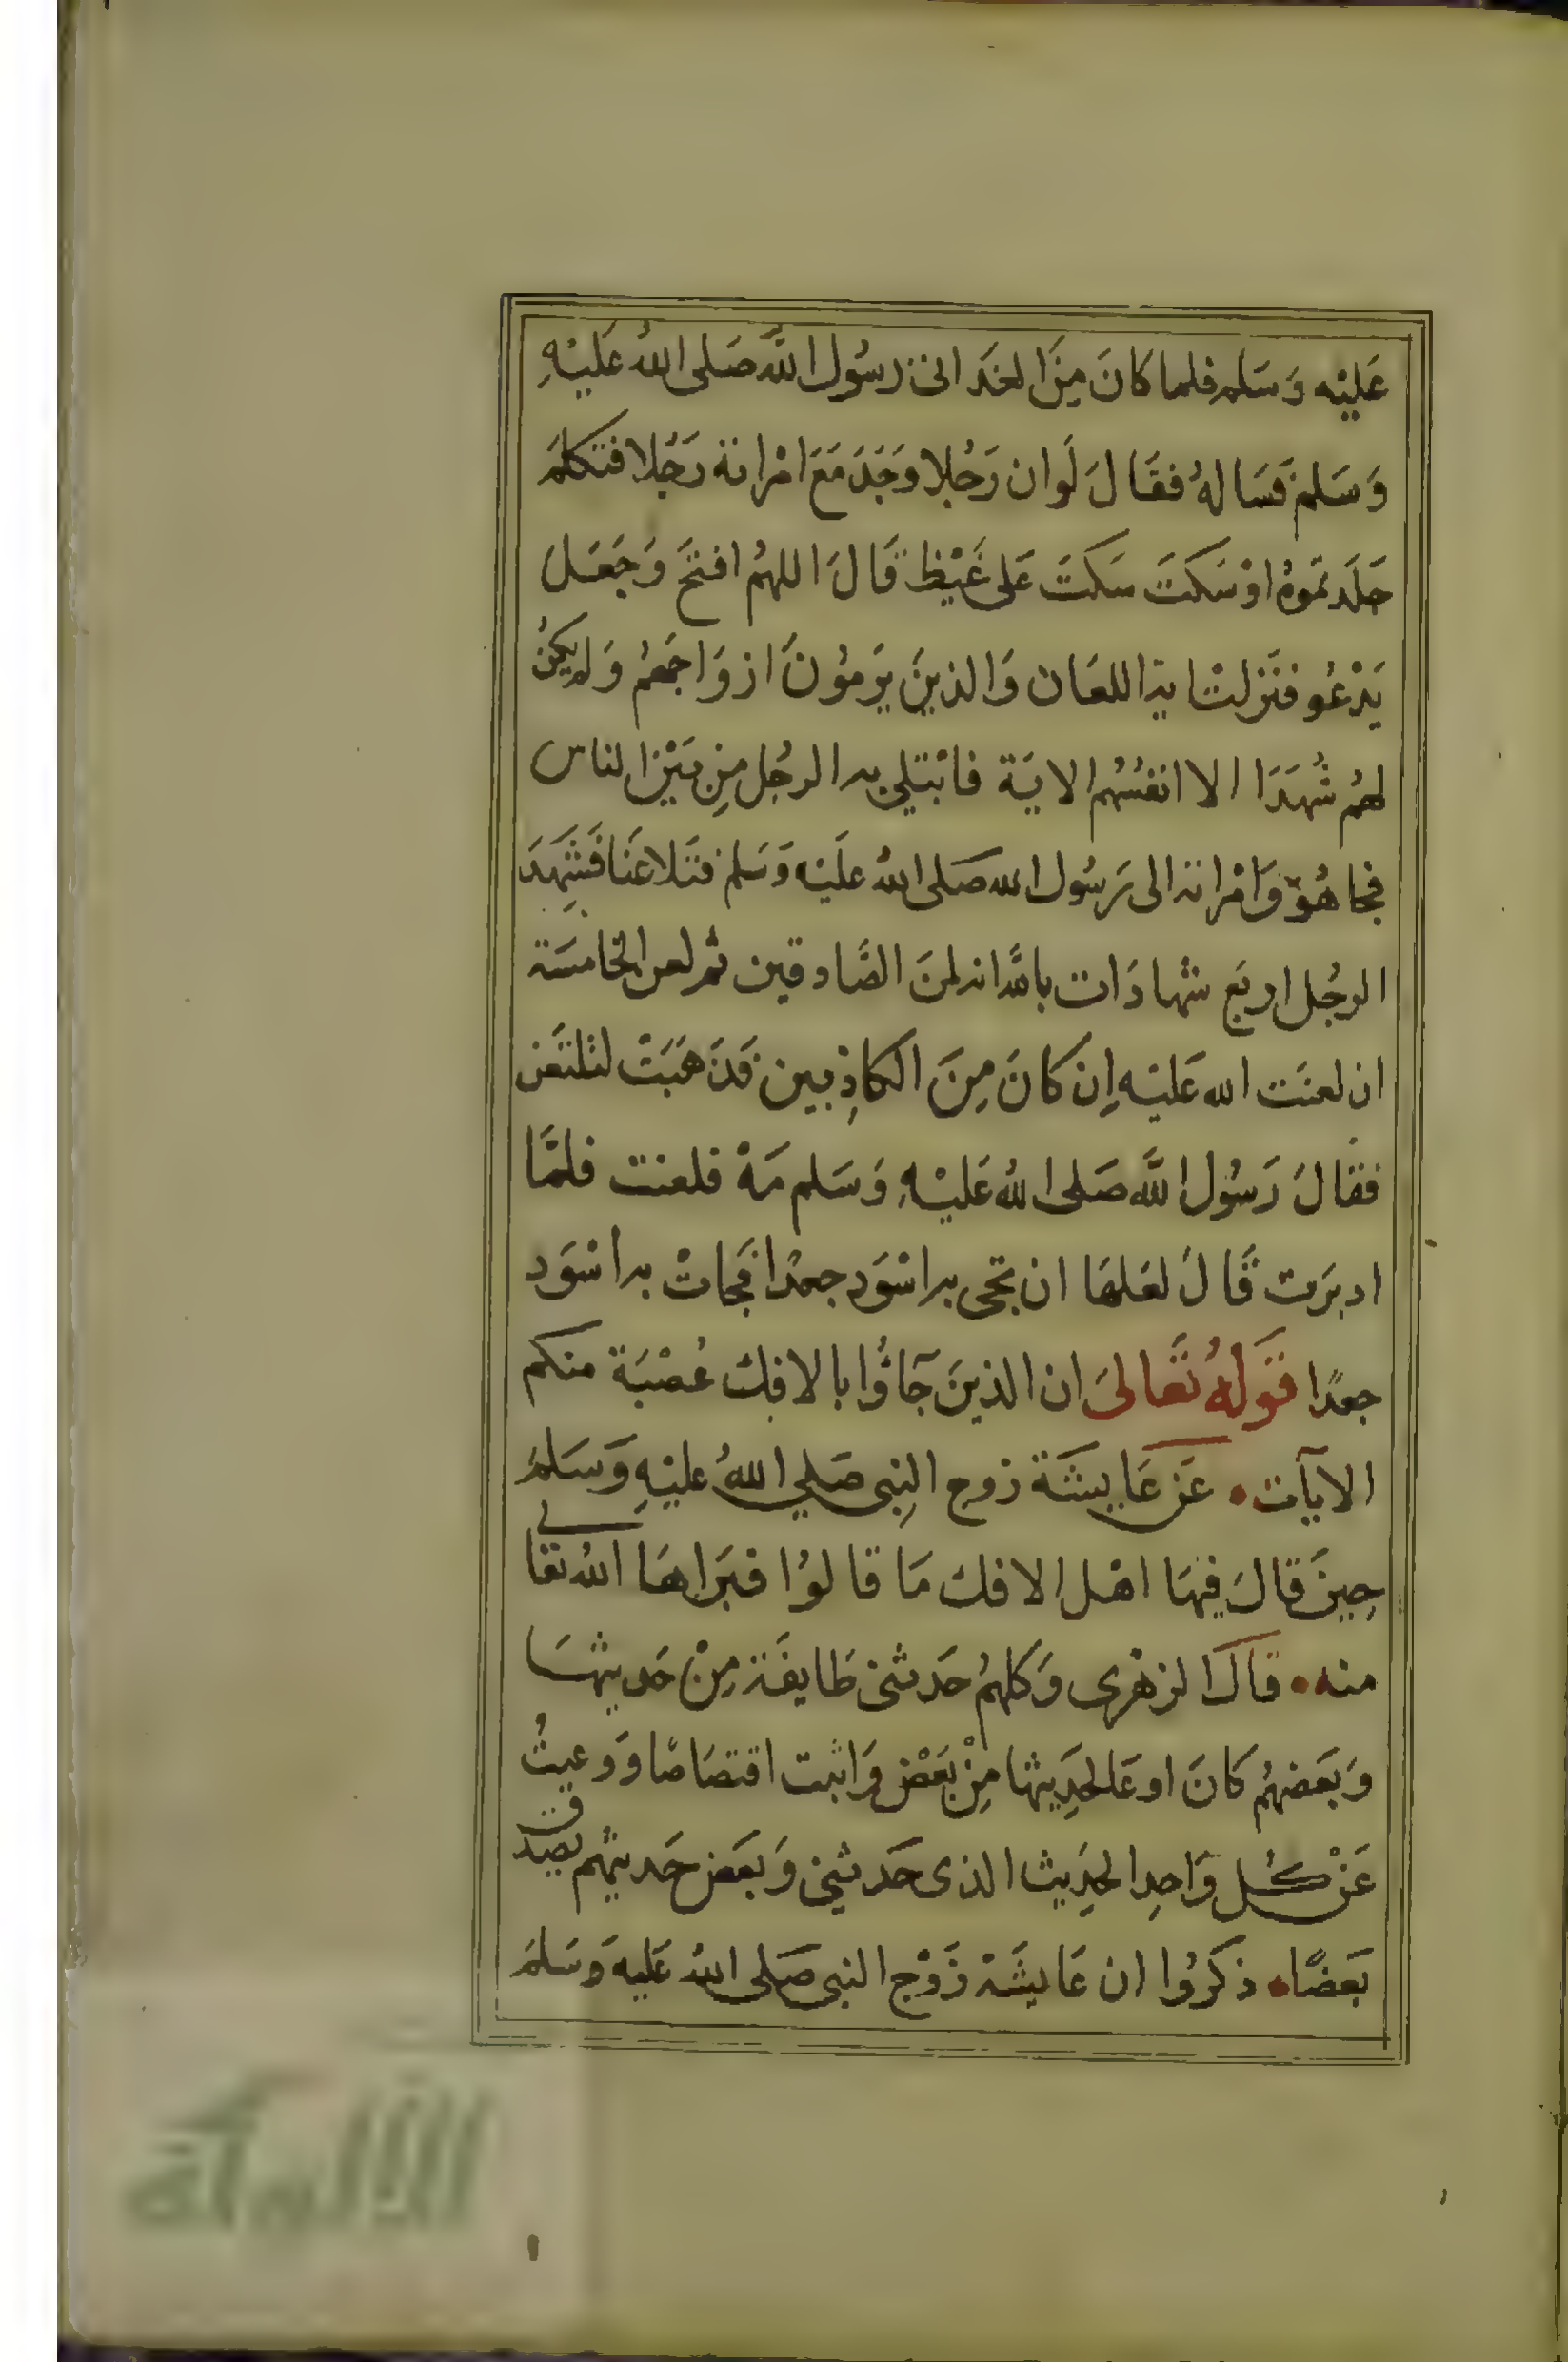 عَليْه وَسَلم فلما كانَ مِنَ الغَد اتى رسُول اللَّه صَلى اللهُ عَليْهِ
وَسَلم فسَالهُ فقَالَ لَوان رَجُلا وَجَدَ مَعَ امْراته رَجُلا فتكلمَ
جَلَدتموهُ اوْ سَكتَ سَكتَ عَلى غَيْظ قَالَ اللهُم افتحَ وَجَعَل
يَدْعُو فنَزلتْ اية اللعَان وَالذينَ يَرمُونَ ازوَاجَهمُ وَلم يَكنْ
لهُم شُهَدَا الا انفسُهُم الايَة فابْتلي به الرجُل مِن بَيْن الناس
فجا هُوَ وَامْراته الى رَسُول الله صَلى اللهُ عَليْه وَسَلم فتَلاعَنا فشَهِدَ
الرجُل اربَع شهادَات بالله انه لمنَ الصَّادقين ثم لعن الخامسَة
ان لعنَت الله عَليْه اِن كانَ مِنَ الكاذِبين فذَهَبَتْ لتلتَعن
فقَالَ رَسُول اللَّه صَلى اللهُ عَليْهِ وَسَلم مَهْ فلعنت فلمَّا
ادبَرت قَالَ لعَلهَا ان تجى به اسْوَد جعدًا فجاتْ به اسْوَد
جعدًا قَولهُ تعَالىَ ان الذينَ جَآؤُا بالافك عُصْبَة منكم
الايآت • عَن عَايشَة زوج النِبى صَلي اللهُ عليْهِ وَسَلمَ
حِينَ قالَ فيهَا اهْل الافك مَا قالوُا فبَراهَا اللهُ تعالى
منه • قالَ الزهْرى وَكلهمُ حَدثنى طَايفَة مِنْ حَديثهَا
وَبَعضهُم كانَ اوعَا لحَدِيثها مِنْ بَعْض وَاثبت اقتصَاصًا وَوعيتُ
عَنْ كُل وَاحِد الحدِيث الذى حَدثنِي وَبعَض حَديثهم يصَدق
بَعضًا • ذكرُوا ان عَايشَة زَوْج النبى صَلى اللهُ عَليه وَسَلمَ
الألوكة